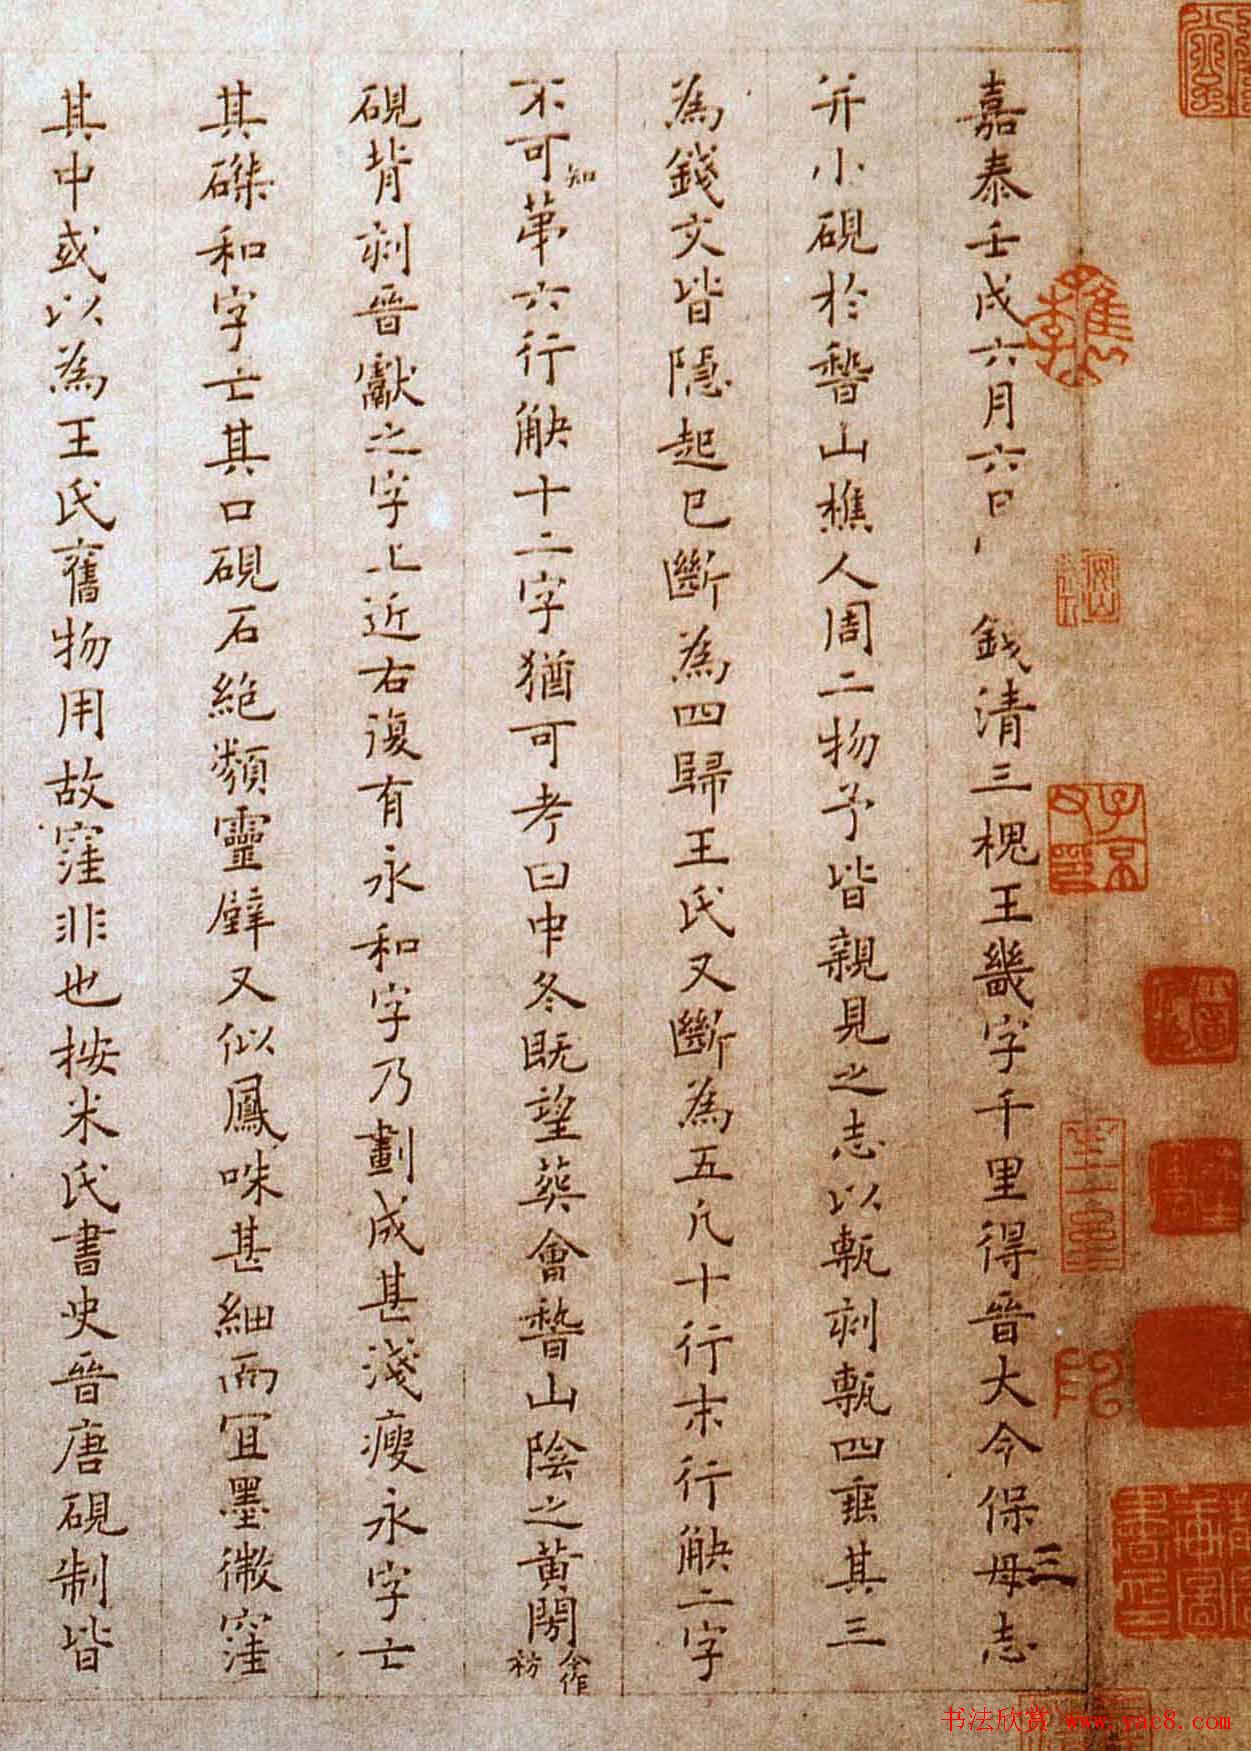 嘉泰壬戌六月六日 錢清三槐王畿字千里得晉大令保母志
三
并小硯於嵇山樵人周二物予皆親見之志以甎刻甎四垂其三
為錢文皆隱起已斷為四歸王氏又斷為五凡十行末行缺二字
不可知第六行缺十二字猶可考曰中冬既望葬會嵇山陰之黃閍今作祊
硯背刻晉獻之字上近右復有永和字乃劃成甚淺瘦永字亡
其磔和字亡其口硯石絕類靈璧又似鳳咮甚細而宜墨微窪
其中或以為王氏舊物用故窪非也按米氏書史晉唐硯制皆
书法欣赏 www.yac8.com